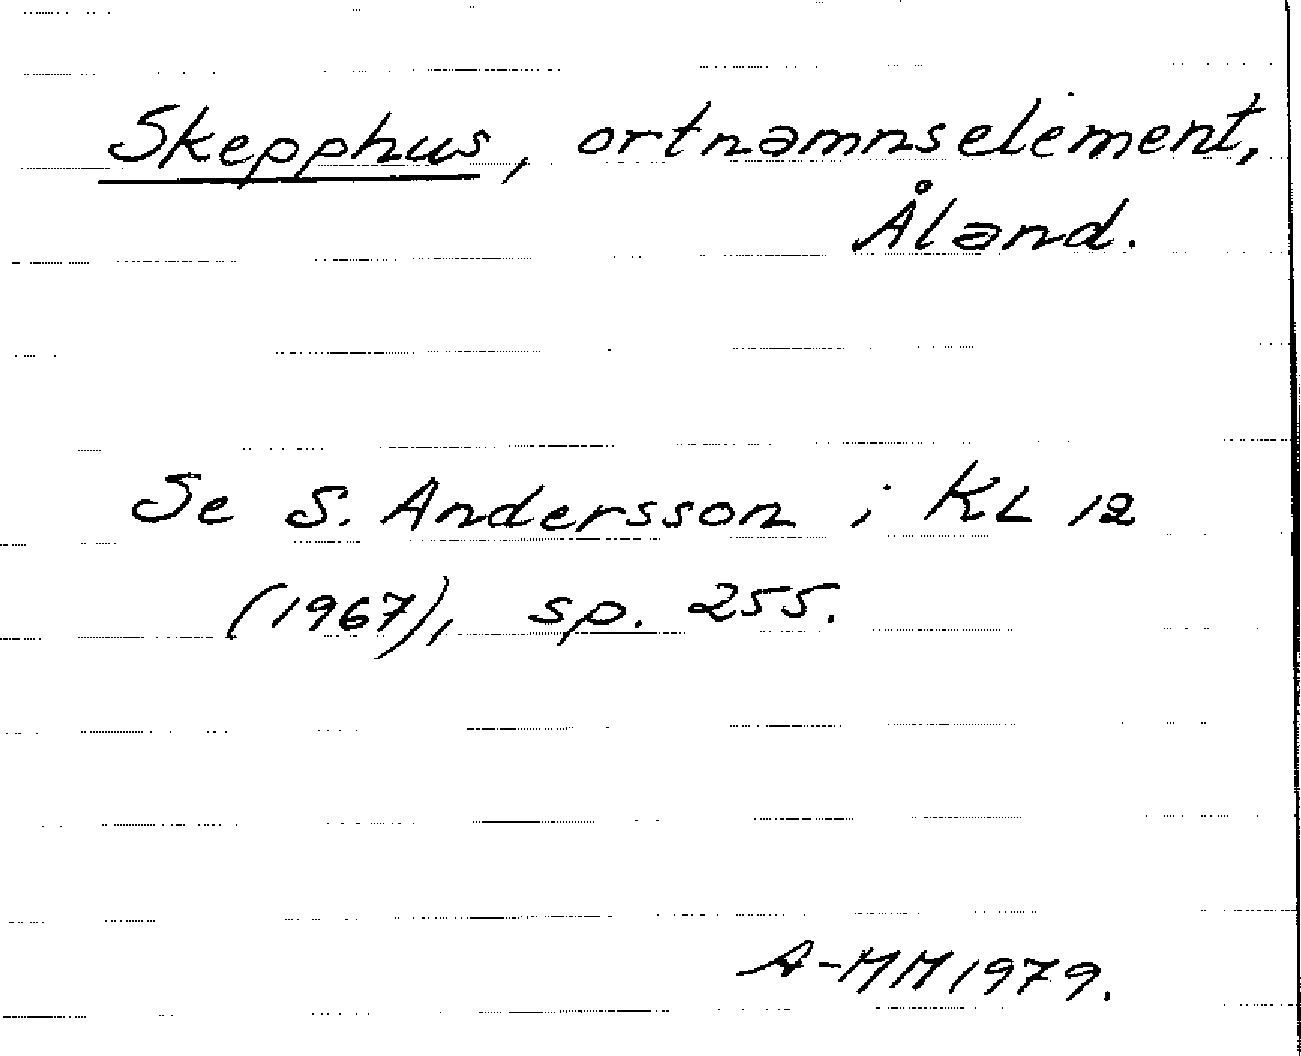 Skepphus, ortnamnselement,
Åland.
Se S. Andersson i KL 12
(1967), sp. 255.
A-MM 1979.